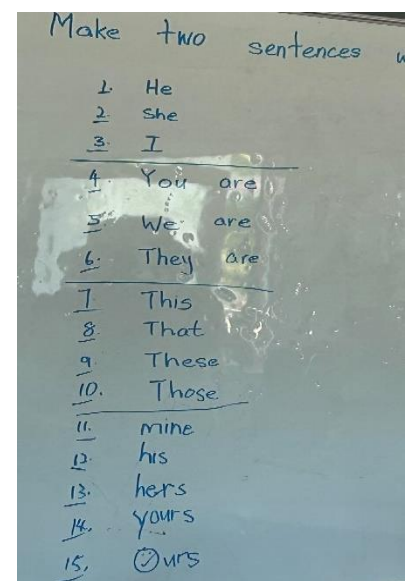 Make two sentences
1. He
2. She
3. I
4. You are
5. We are
6. They are
7 This
8. That
9. These
10. Those
11. mine
12. his
13. hers
14. yours
15. Ours